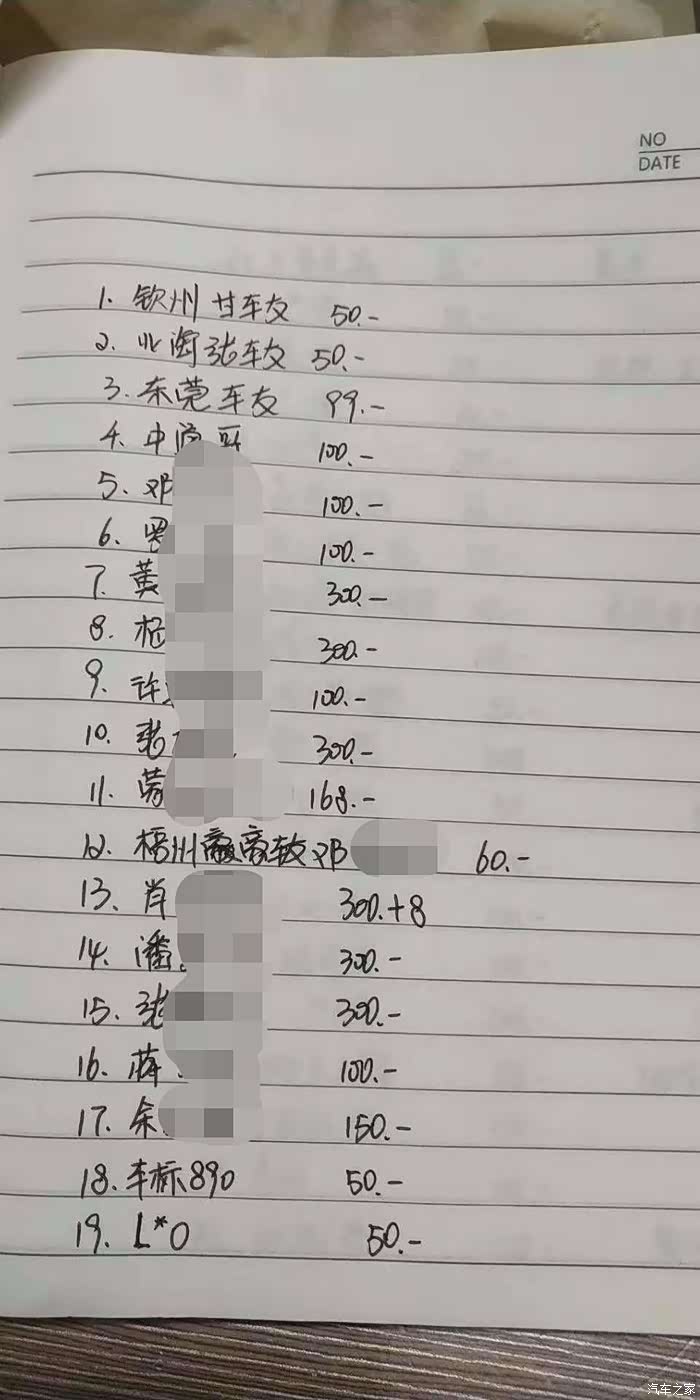 NO
DATE
1. 钦州 甘车友 50.-
2. 北海张车友 50.-
3. 东莞车友 99.-
4. 中 哥 100.-
5. 邓 100.-
6. 罗 100.-
7. 黄 300.-
8. 300.-
9. 许 100.-
10. 张 300.-
11. 168.-
12. 梧州 车友邓 60.-
13. 肖 300.+8
14. 潘 300.-
15. 张 300.-
16. 100.-
17. 余 150.-
18. 车标890 50.-
19. L*O 50.-
汽车之家